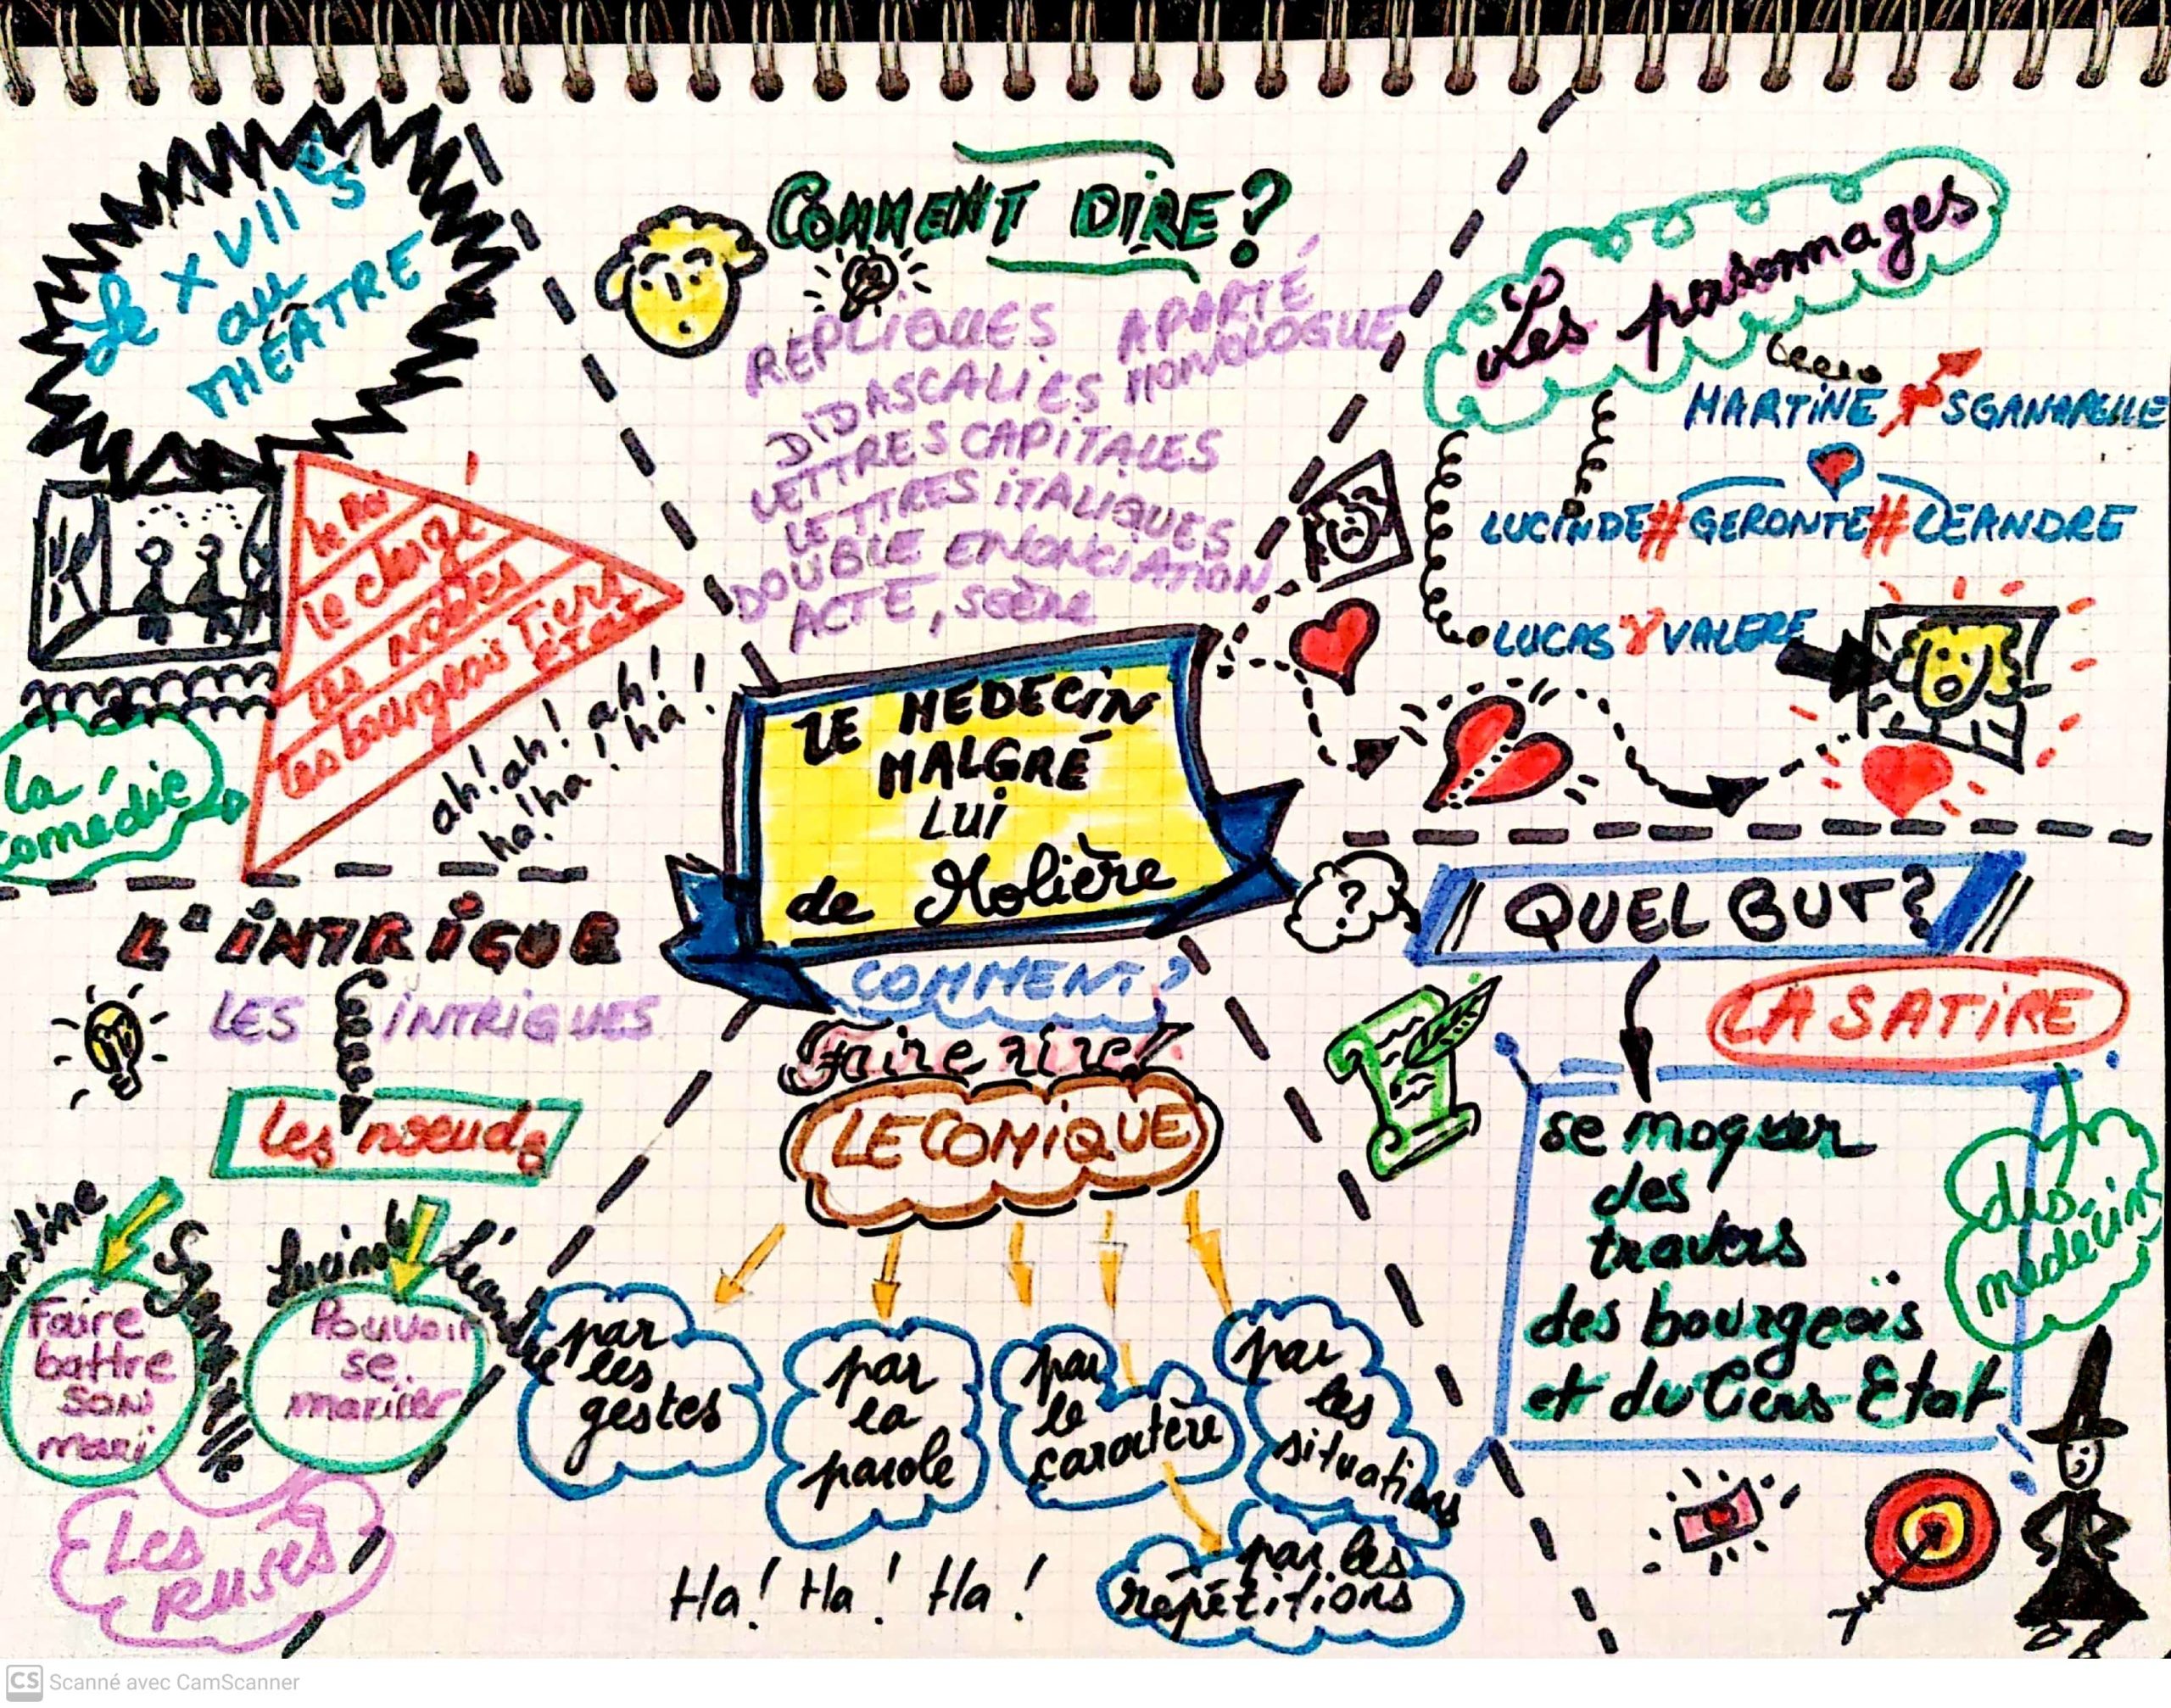 Le XVII è S
au
THÉÂTRE
le Roi
le clergé
les nobles
les bourgeois Tiers
Etat
la
comédie
ah! ah! ah!
ha! ha! ha!
COMMENT DIRE?
REPLIQUES APARTÉ
DIDASCALIES MONOLOGUE
LETTRES CAPITALES
LETTRES ITALIQUES
DOUBLE ENONCIATION
ACTE, SCÈNE
Les personnages
MARTINE SGANARELLE
LUCINDE # GERONTE # LEANDRE
LUCAS & VALERE
LE MEDECIN
MALGRÉ
LUI
de Molière
L'INTRIGUE
LES INTRIGUES
Les noeuds
Martine
Lucinde Léandre
Faire
battre
son
mari
Pouvoir
se
marier
Les
RUSES
COMMENT?
Faire rire!
LE COMIQUE
par
les
gestes
par
la
parole
par
le
caractère
par
les
situations
par les
répétitions
Ha! Ha! Ha!
?
QUEL BUT?
LA SATIRE
se moquer
des
travers
des bourgeois
et du Tiers Etat
des
médecins
CS Scanné avec CamScanner